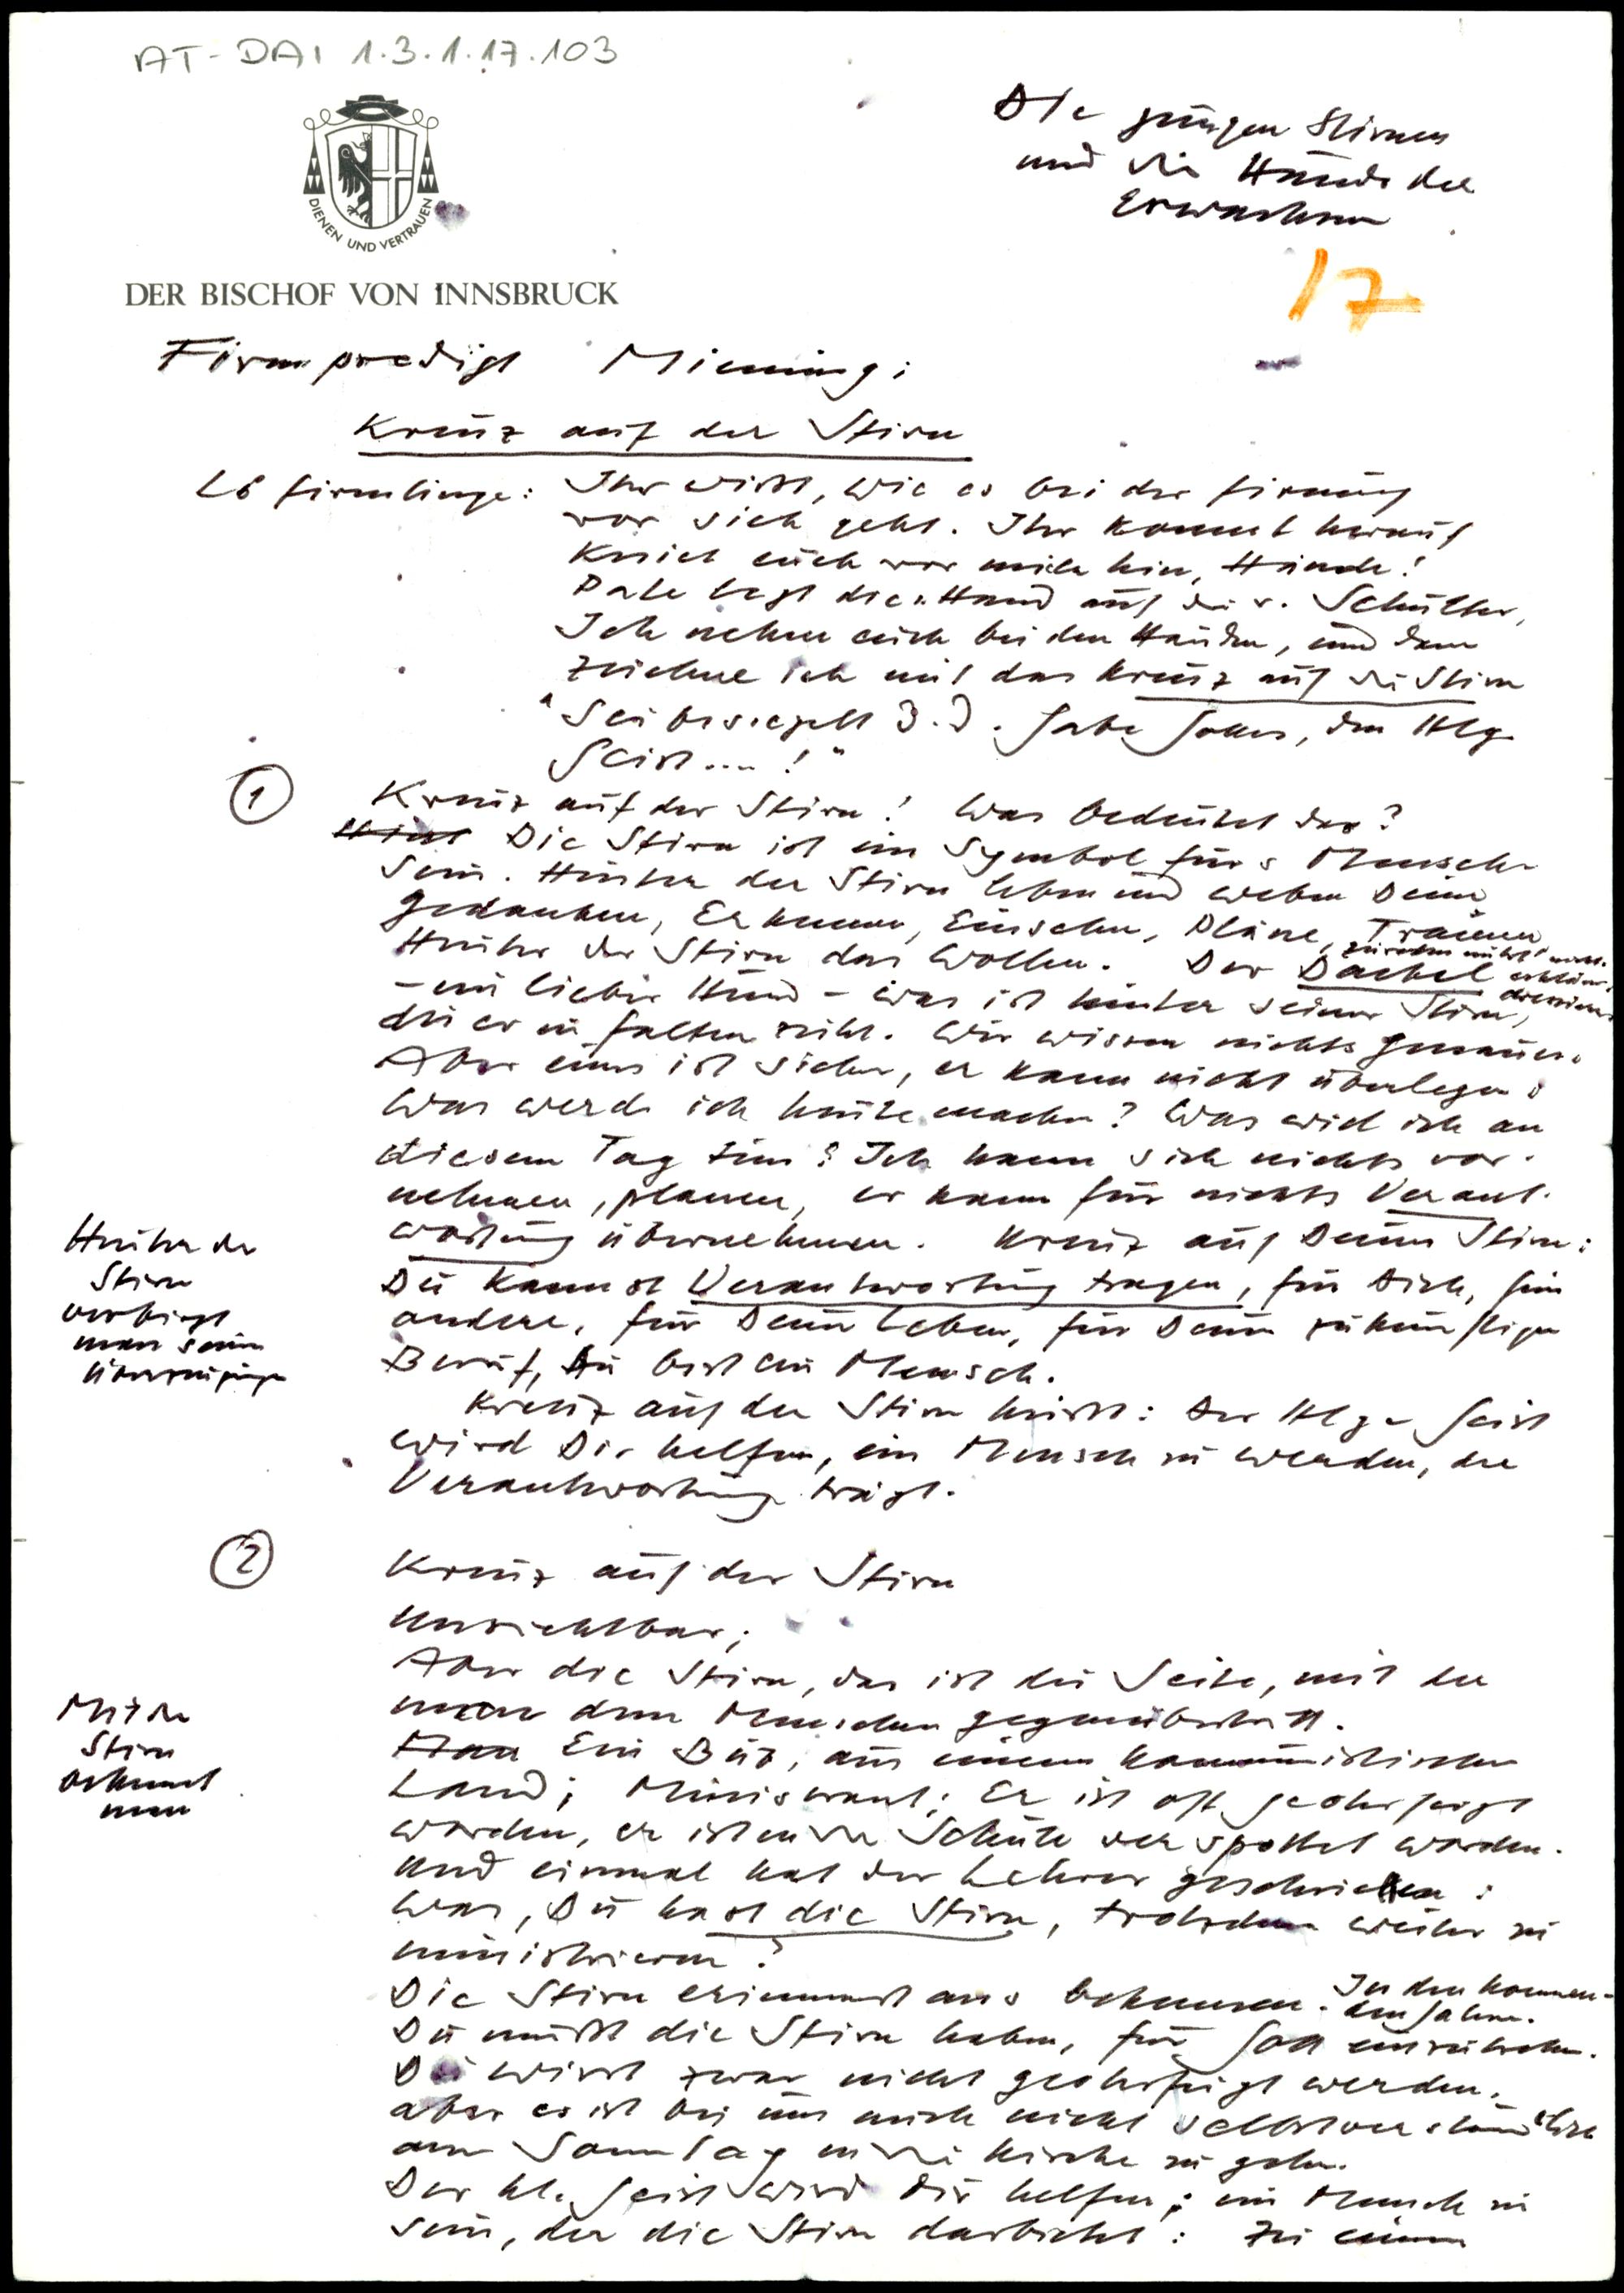 AT-DAI 1.3.1.17.103
Die jungen Stirnen
und die Hände der
Erwachsenen
DIENEN UND VERTRAUEN
17
DER BISCHOF VON INNSBRUCK
Firmpredigt Mieming:
Kreuz auf der Stirn
Lb Firmlinge: Ihr wißt, wie es bei der Firmung
vor sich geht. Ihr kommt herauf
kniet euch vor mich hin, Hände!
Pate legt die Hand auf die r. Schulter,
Ich nehme euch bei den Händen, und dann
zeichne ich mit das Kreuz auf die Stirn
"Sei besiegelt d. d. Gabe Gottes, den Hlg.
Geist....!"
1 Kreuz auf der Stirn! Was bedeutet das?
Die Stirn ist ein Symbol fürs Mensch
sein. Hinter der Stirn leben und weben Deine
Gedanken, Erkennen, Einsehen, Pläne, Träume
Hinter der Stirn das Wollen. Der Dackel
- ein lieber Hund - was ist hinter seiner Stirn,
die er in Falten zieht. Wir wissen nichts genaues.
Aber eines ist sicher, er kann nicht überlegen:
Was werde ich heute machen? Was will ich an
diesem Tag tun? Ich kann sich nichts vor-
nehmen, planen, er kann für nichts Verant-
wortung übernehmen. Kreuz auf Deiner Stirn:
Du kannst Verantwortung tragen, für Dich, für
andere, für Dein Leben, für Deinen zukünftigen
Beruf, Du bist ein Mensch.
Hinter der
Stirn
verbirgt
man seine
Überzeugung
Kreuz auf der Stirn heißt: Der Hlge Geist
wird Dir helfen, ein Mensch zu werden, der
Verantwortung trägt.
2 Kreuz auf der Stirn
Unsichtbar;
Aber die Stirn, das ist die Seite, mit der
man dem Menschen gegenübertritt.
Mit der
Stirn
bekennt
man
Ein Bub, aus einem kommunistischen
Land; Ministrant; Er ist oft geohrfeigt
worden, er ist in der Schule verspottet worden.
Und einmal hat der Lehrer geschrieen:
Was, Du hast die Stirn, trotzdem weiter zu
ministrieren?
Die Stirn erinnert ans Bekennen. In den kommen-
den Jahren.
Du mußt die Stirn haben, für Gott einzutreten.
Du wirst zwar nicht geohrfeigt werden.
aber es ist bei uns auch nicht selbstverständlich
am Sonntag in die Kirche zu gehen.
Der hl. Geist wird Dir helfen; ein Mensch zu
sein, der die Stirn darbietet: Zu einem